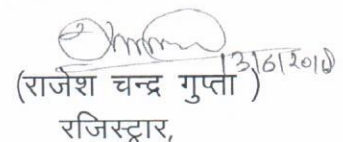 13/6/2018
(राजेश चन्द्र गुप्ता )
रजिस्ट्रार,